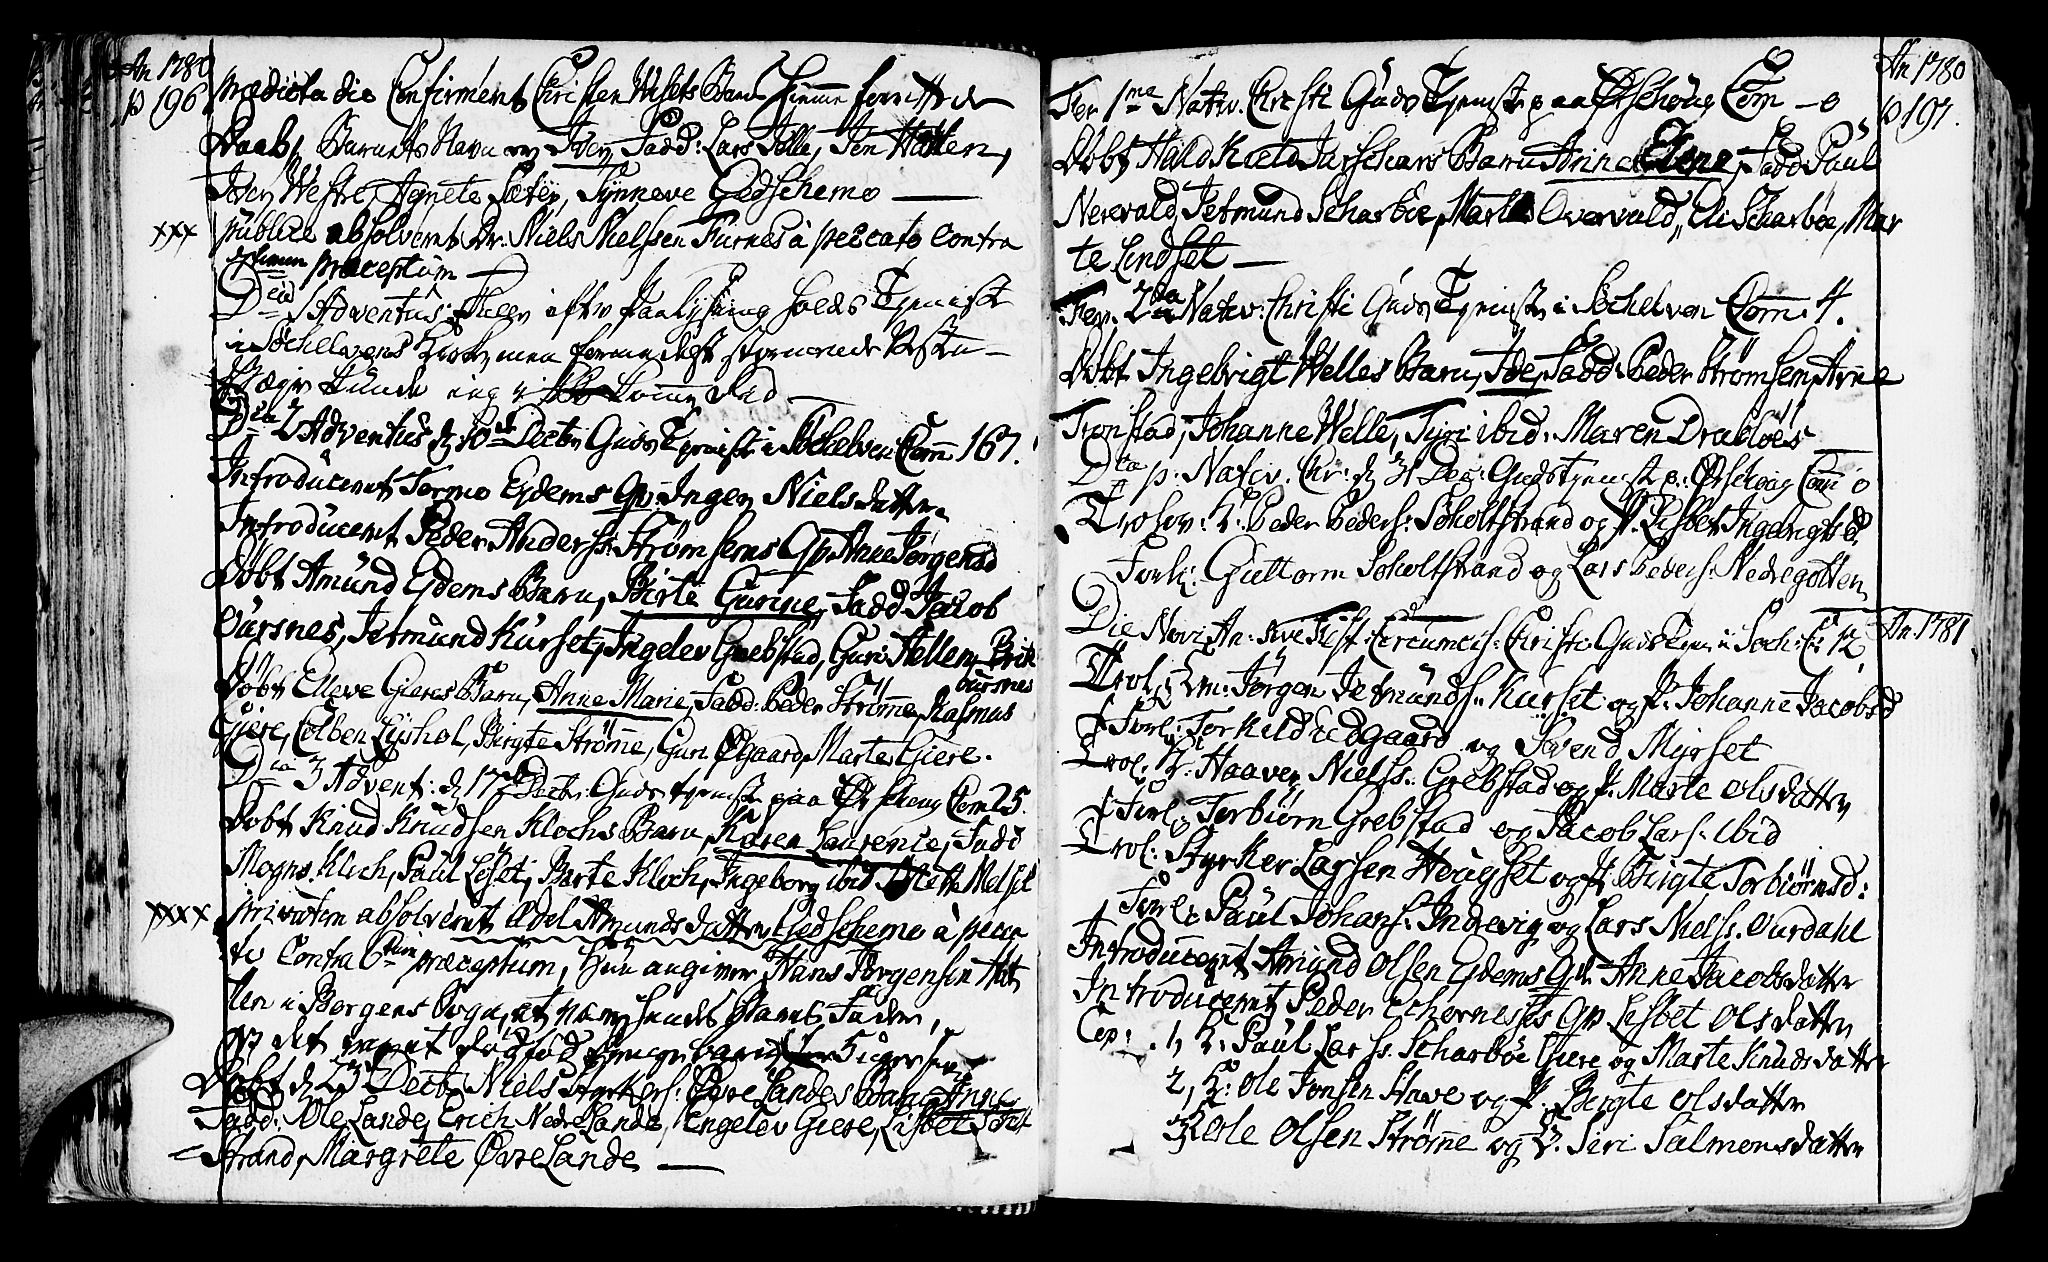 An 1780
p 196
Prædicta die Confirmert Christen Welsets Barn hiemme forrettede
Daab, Barnets Navn er Iver, Fadd: Lars Tolle, Jen Hatlen,
Iver Westre, Agnete Sætter, Synneve Gedschemo —
xxx publice absolveret Br: Niels Nielssen Furnes à peccato contra
sextum præceptum —
Dca 1 Adventus: Skeer efter Paalysning holdes Tjeniste
i Söchelvens Kirke, men formedelst stormende
Vægir kunde jeg ei komme did —
Dca 2 Adventus d 10 Decbr Guds Tjenist i Söchelven Com 167.
Introduceret Tormo Eydems Qv: Inger Nielsdatter
Introduceret Peder Anderss: Strömsems Qv Anne Jörgensd
Döbt Amund Eydems Barn, Birte Gurine, Fadd Jacob
Oursnes, Jetmund Kurset, Ingelev Grebstad, Guri Hellen, Brite
Oursnes
Döbt Elleve Gieres Barn, Anne Marie, Fadd: Peder Strömme, Rasmus
Giere, Colben Lyshol, Birgte Strömme, Guri Ögaard, Marte Giere.
Dca 3 Advent: d 17 Decbr: Guds tjeniste paa Örschoug Com 25.
Döbt Knud Knudsen Klochs Barn, Karen Laurenie, Fadd
Mogns Kloch, Paul Löset, Berte Kloch, Ingeborg ibid, Mette Melset
xxxx privatim absolveret Edel Amundsdatter Gedschemo à pecca
to Contra 6tum præceptum, hun angiver Hans Jörgensen Hat
len i Borgens Sogn, at være hendes Barns Fader,
og det
Döbt d 23 Decbr Niels Styrkers: Övre Landes Barn Anne
Fadd: Ole Lande, Erich Nedre Lande, Engelev Giere, Lisbet Solt
Strand, Margrete Övre Lande —
An 1780
p 197.
Fer 1ma Nativ. Christi Guds Tjeniste paa Örschoug Com — 0
Döbt Hald Kield Scharboes Barn Anne Elene, Fadd Paul
Nerevald, Jetmund Scharböe, Marte Overvald, Eli Scharböe, Mar
te Lindset —
Fer: 2da Nativ: Christi Guds Tjeniste i Söchelven Com: 4.
Döbt Ingebrigt Welles Barn, Ide, Fadd: Peder Strömsem, Arne
Tronstad, Johanne Welle, Tyri ibid: Maren Drablöes
Dca p. Nativ. Chr: d 31 Dec: Gudstjeniste p: Örschoug Com 0
Trolov: K: Peder Peders: Söholtstrand og P. Lisbet Ingebrigtsd.
Forl: Guttorm Soholtstrand og Lars Peders: Nedregotten
Die Novi An: sive Fest: Circumcis: Christi Guds Tjen i Soch: C: 12 An 1781
Trol: Em: Jörgen Jetmunds: Kurset og P. Johanne Jacobsd
Forl: Torkild Eedgaard og Svend Myrset
Trol: K: Haaver Nielss: Grebstad og P. Marte Olsdatter
Forl: Torbiörn Grebstad og Jacob Lars: ibid
Trol: Styrker Larsen Hougset og P. Birgte Torbiörnsd:
Forl: Paul Johans: Indrevig og Lars Nielss: Ourdahl
Introduceret Amund Olsen Eydems Qv: Anne Jacobsdatter
Introduceret Peder Echorness Qv Lisbet Olsdatter
Cop: 1, K: Paul Larss: Scharböe Giere og Marte Knudsdatter
2, K: Ole Jonsen Stave og P. Birgte Olsdatter
3 K Ole Olsen Strömme og P. Siri Salmonsdatter